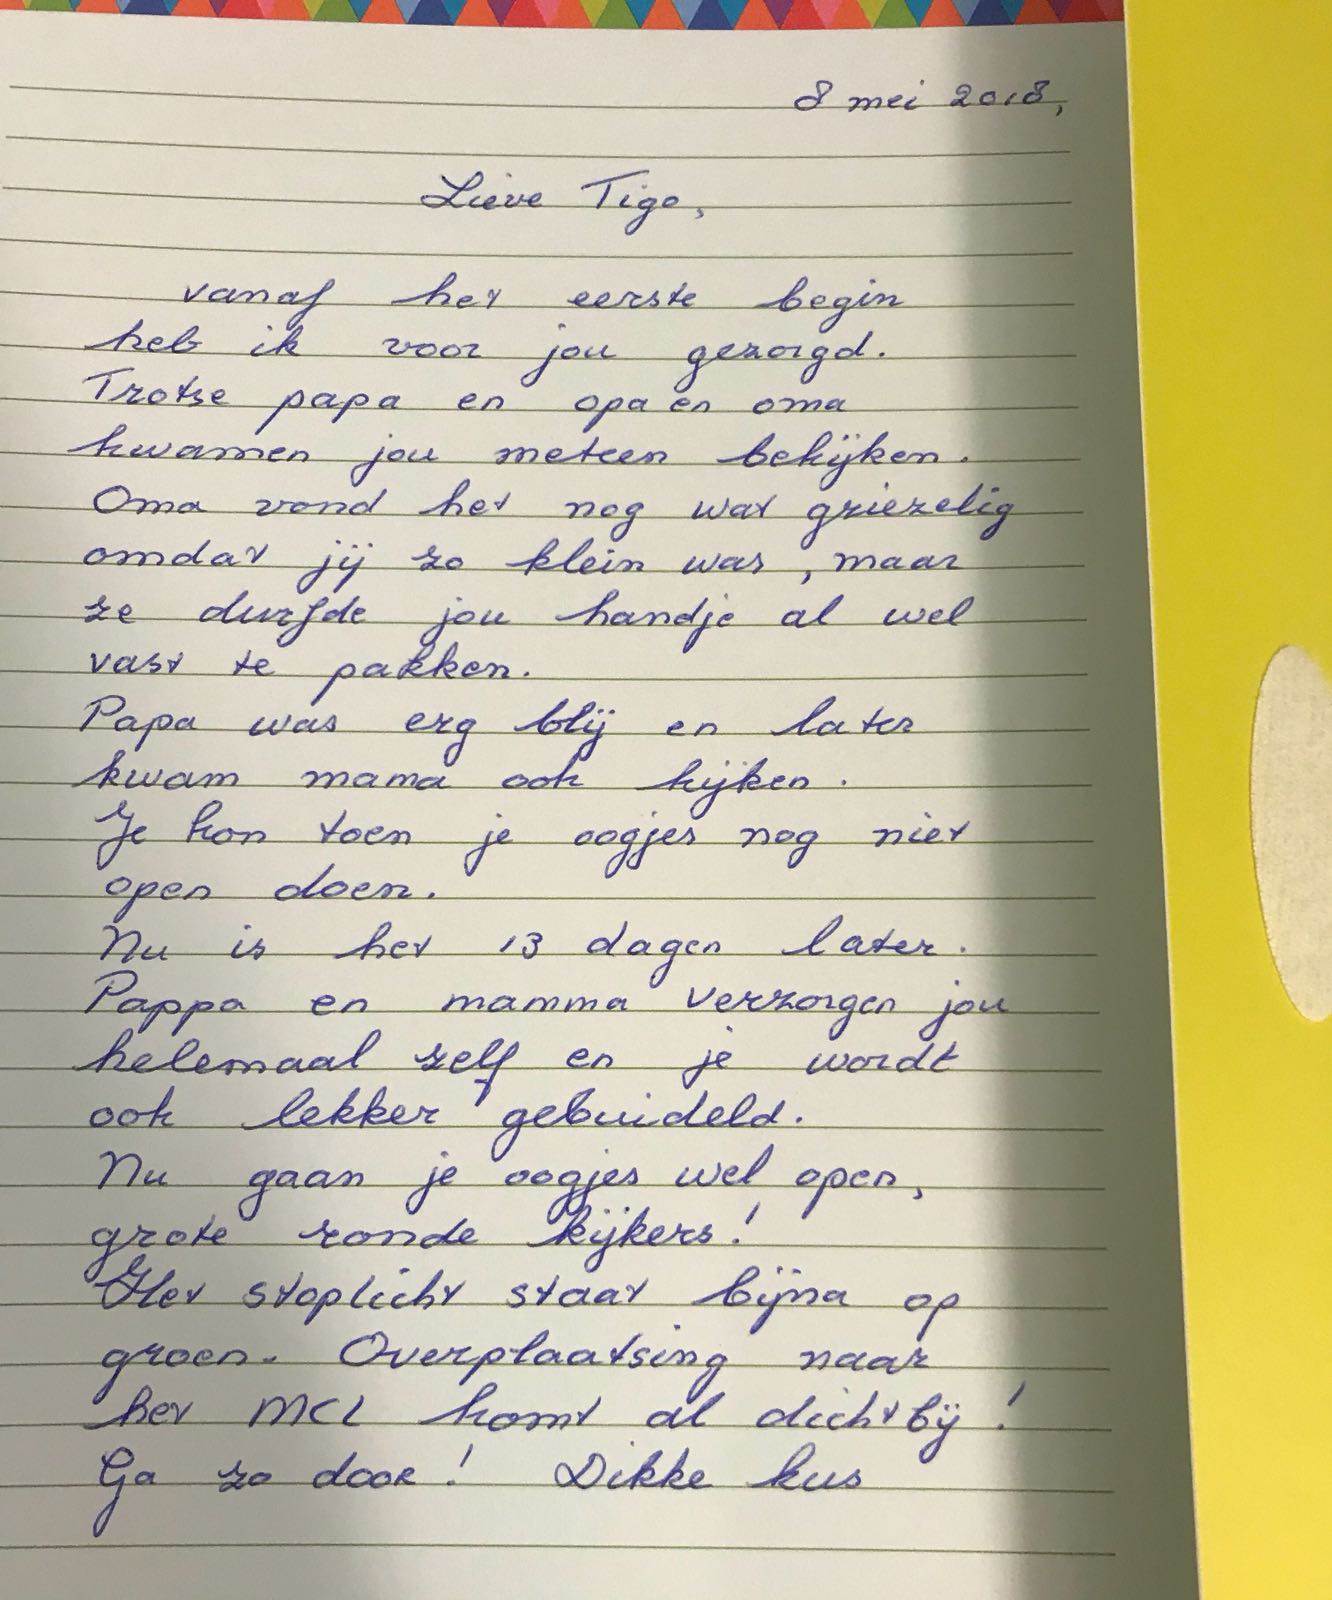 8 mei 2018,
Lieve Tigo,
vanaf het eerste begin
heb ik voor jou gezorgd.
Trotse papa en opa en oma
kwamen jou meteen bekijken.
Oma vond het nog wat griezelig
omdat jij zo klein was, maar
ze durfde jou handje al wel
vast te pakken.
Papa was erg blij en later
kwam mama ook kijken.
Je kon toen je oogjes nog niet
open doen.
Nu is het 13 dagen later.
Pappa en mamma verzorgen jou
helemaal zelf en je wordt
ook lekker gebuideld.
Nu gaan je oogjes wel open,
grote ronde kijkers!
Het stoplicht staat bijna op
groen. Overplaatsing naar
het MCL komt al dichtbij!
Ga zo door! Dikke kus